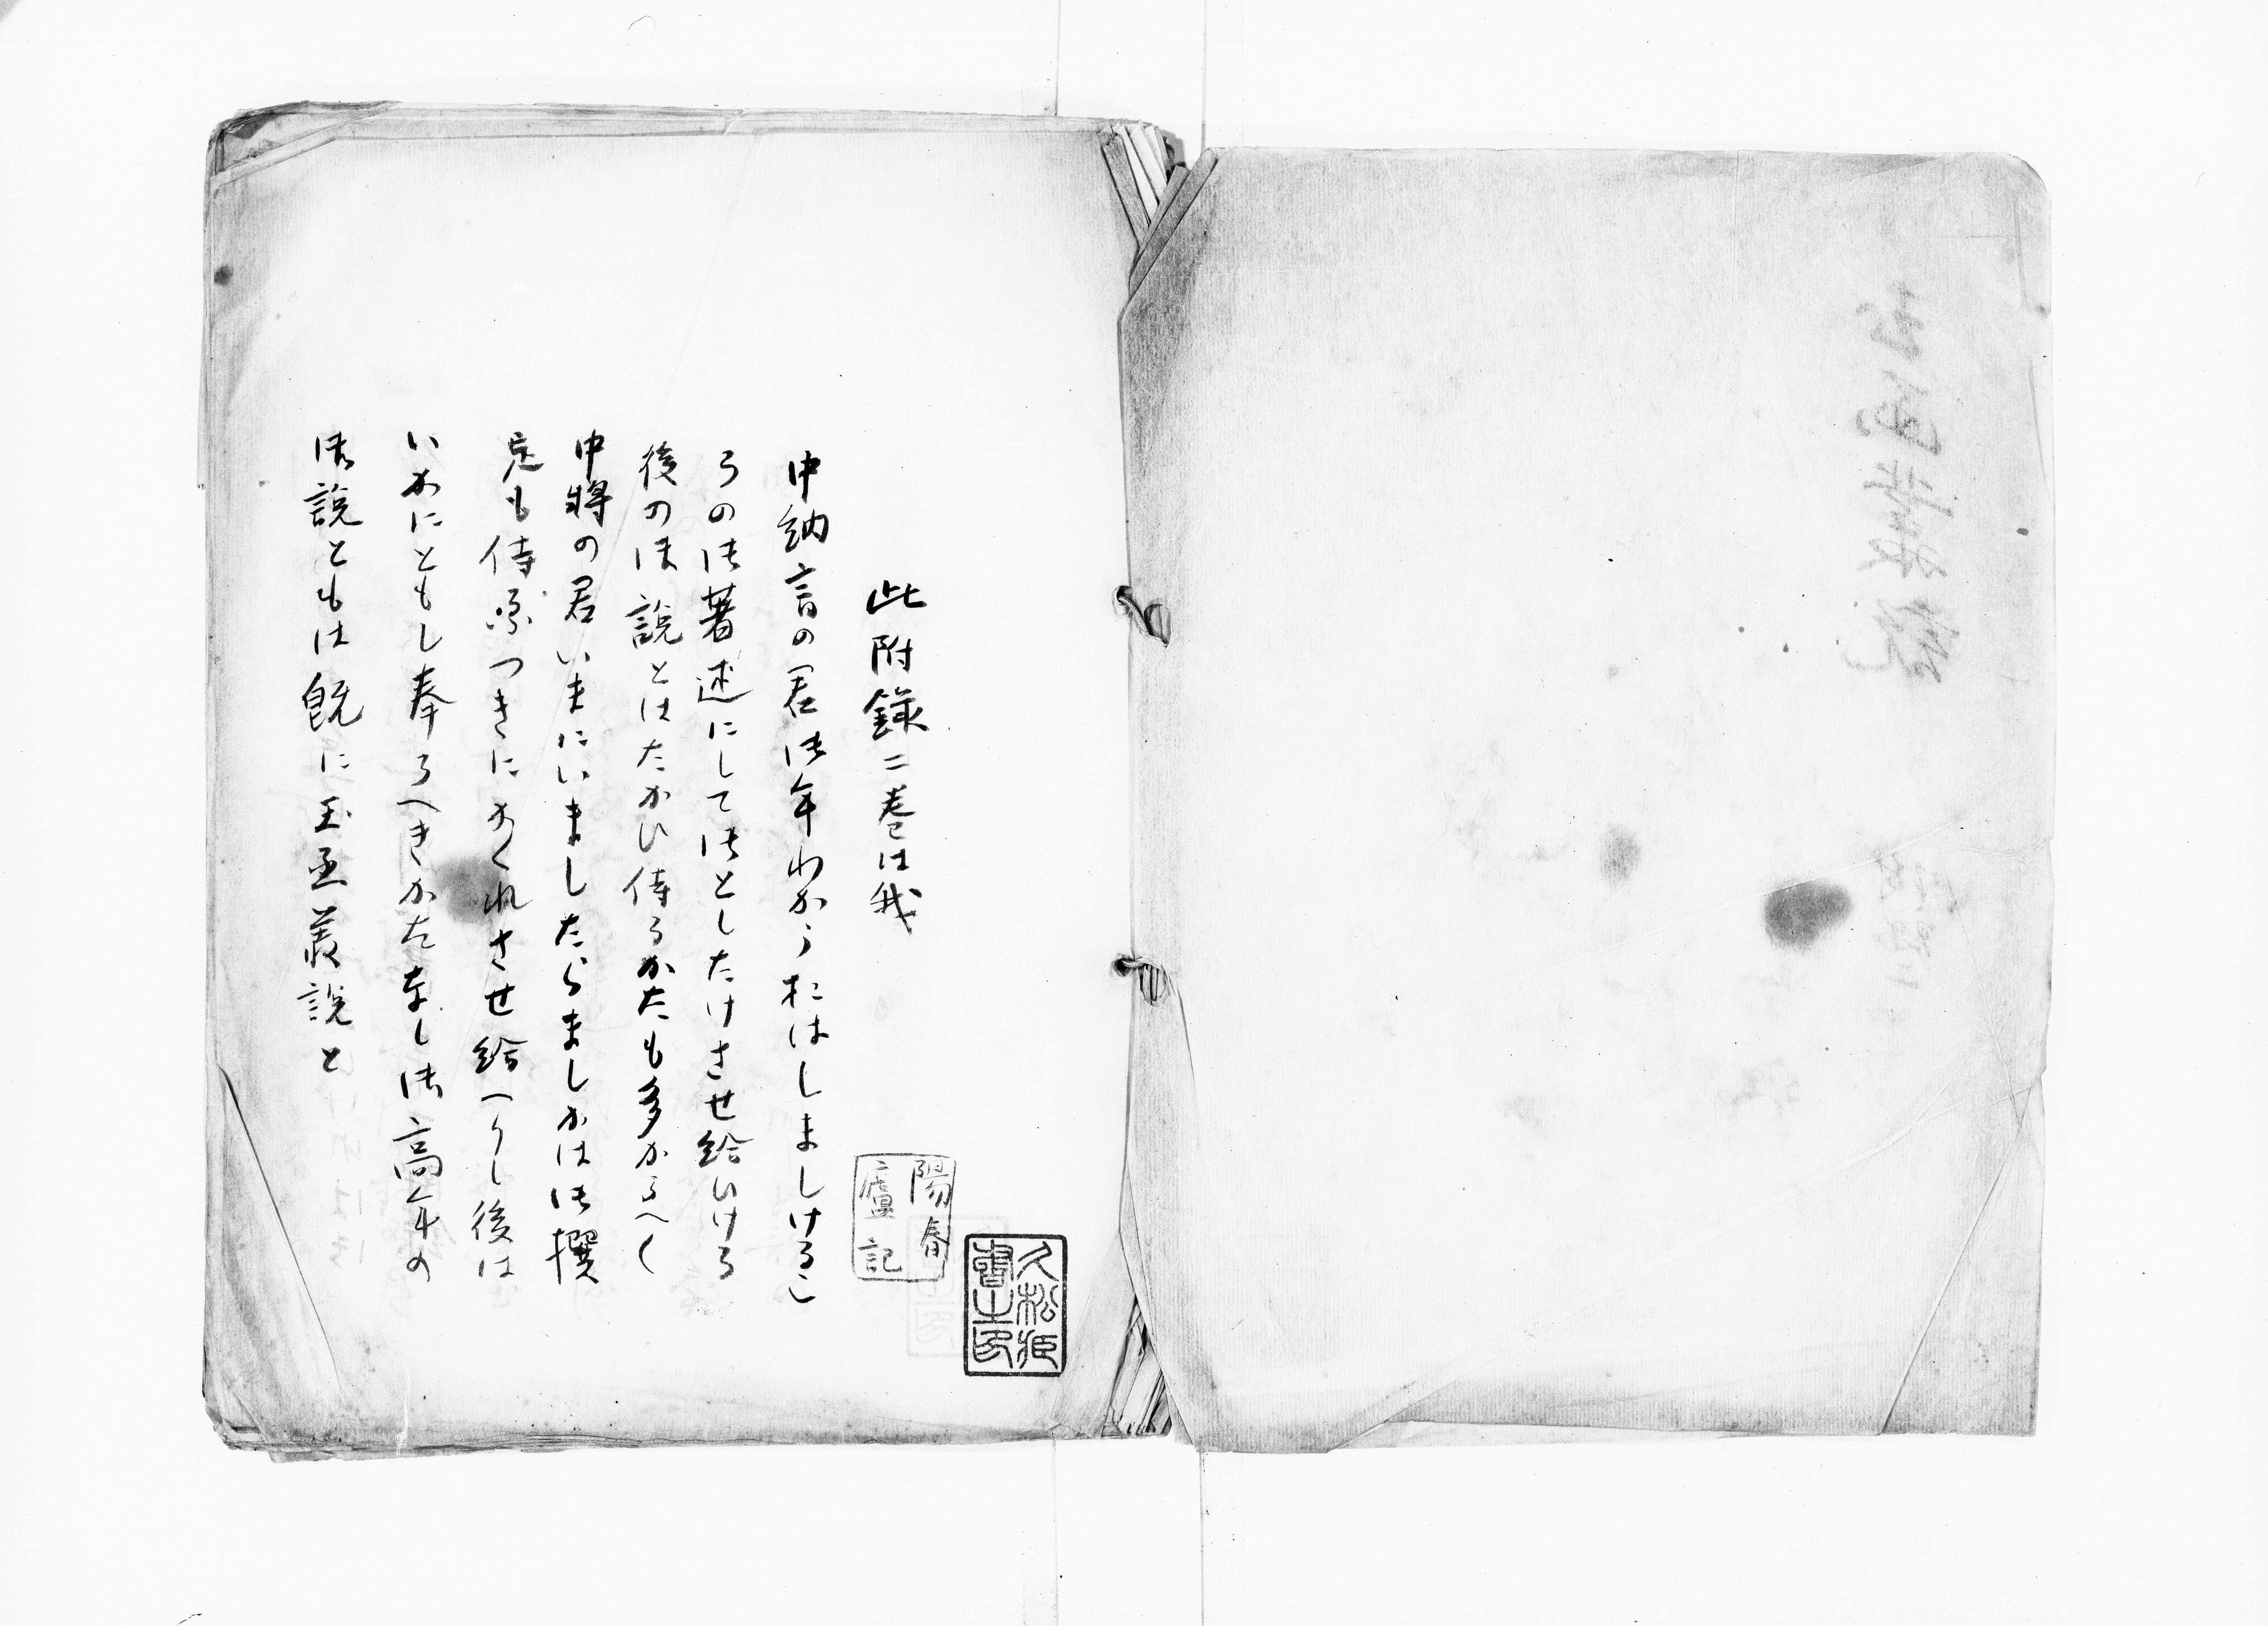 此附録二巻は我
中納言の君御年わかうおはしましけるこ
ろの御著述にして御としたけさせ給ひける
後の御説とはたかひ侍るかたも多かるへく
中将の君いまにいましたらましかは御撰
定も侍つきにおくれさせ給へりし後は
いかにともし奉るへきかたなし御高年の
御説ともは既に玉函叢説と
陽春
廬記
久松